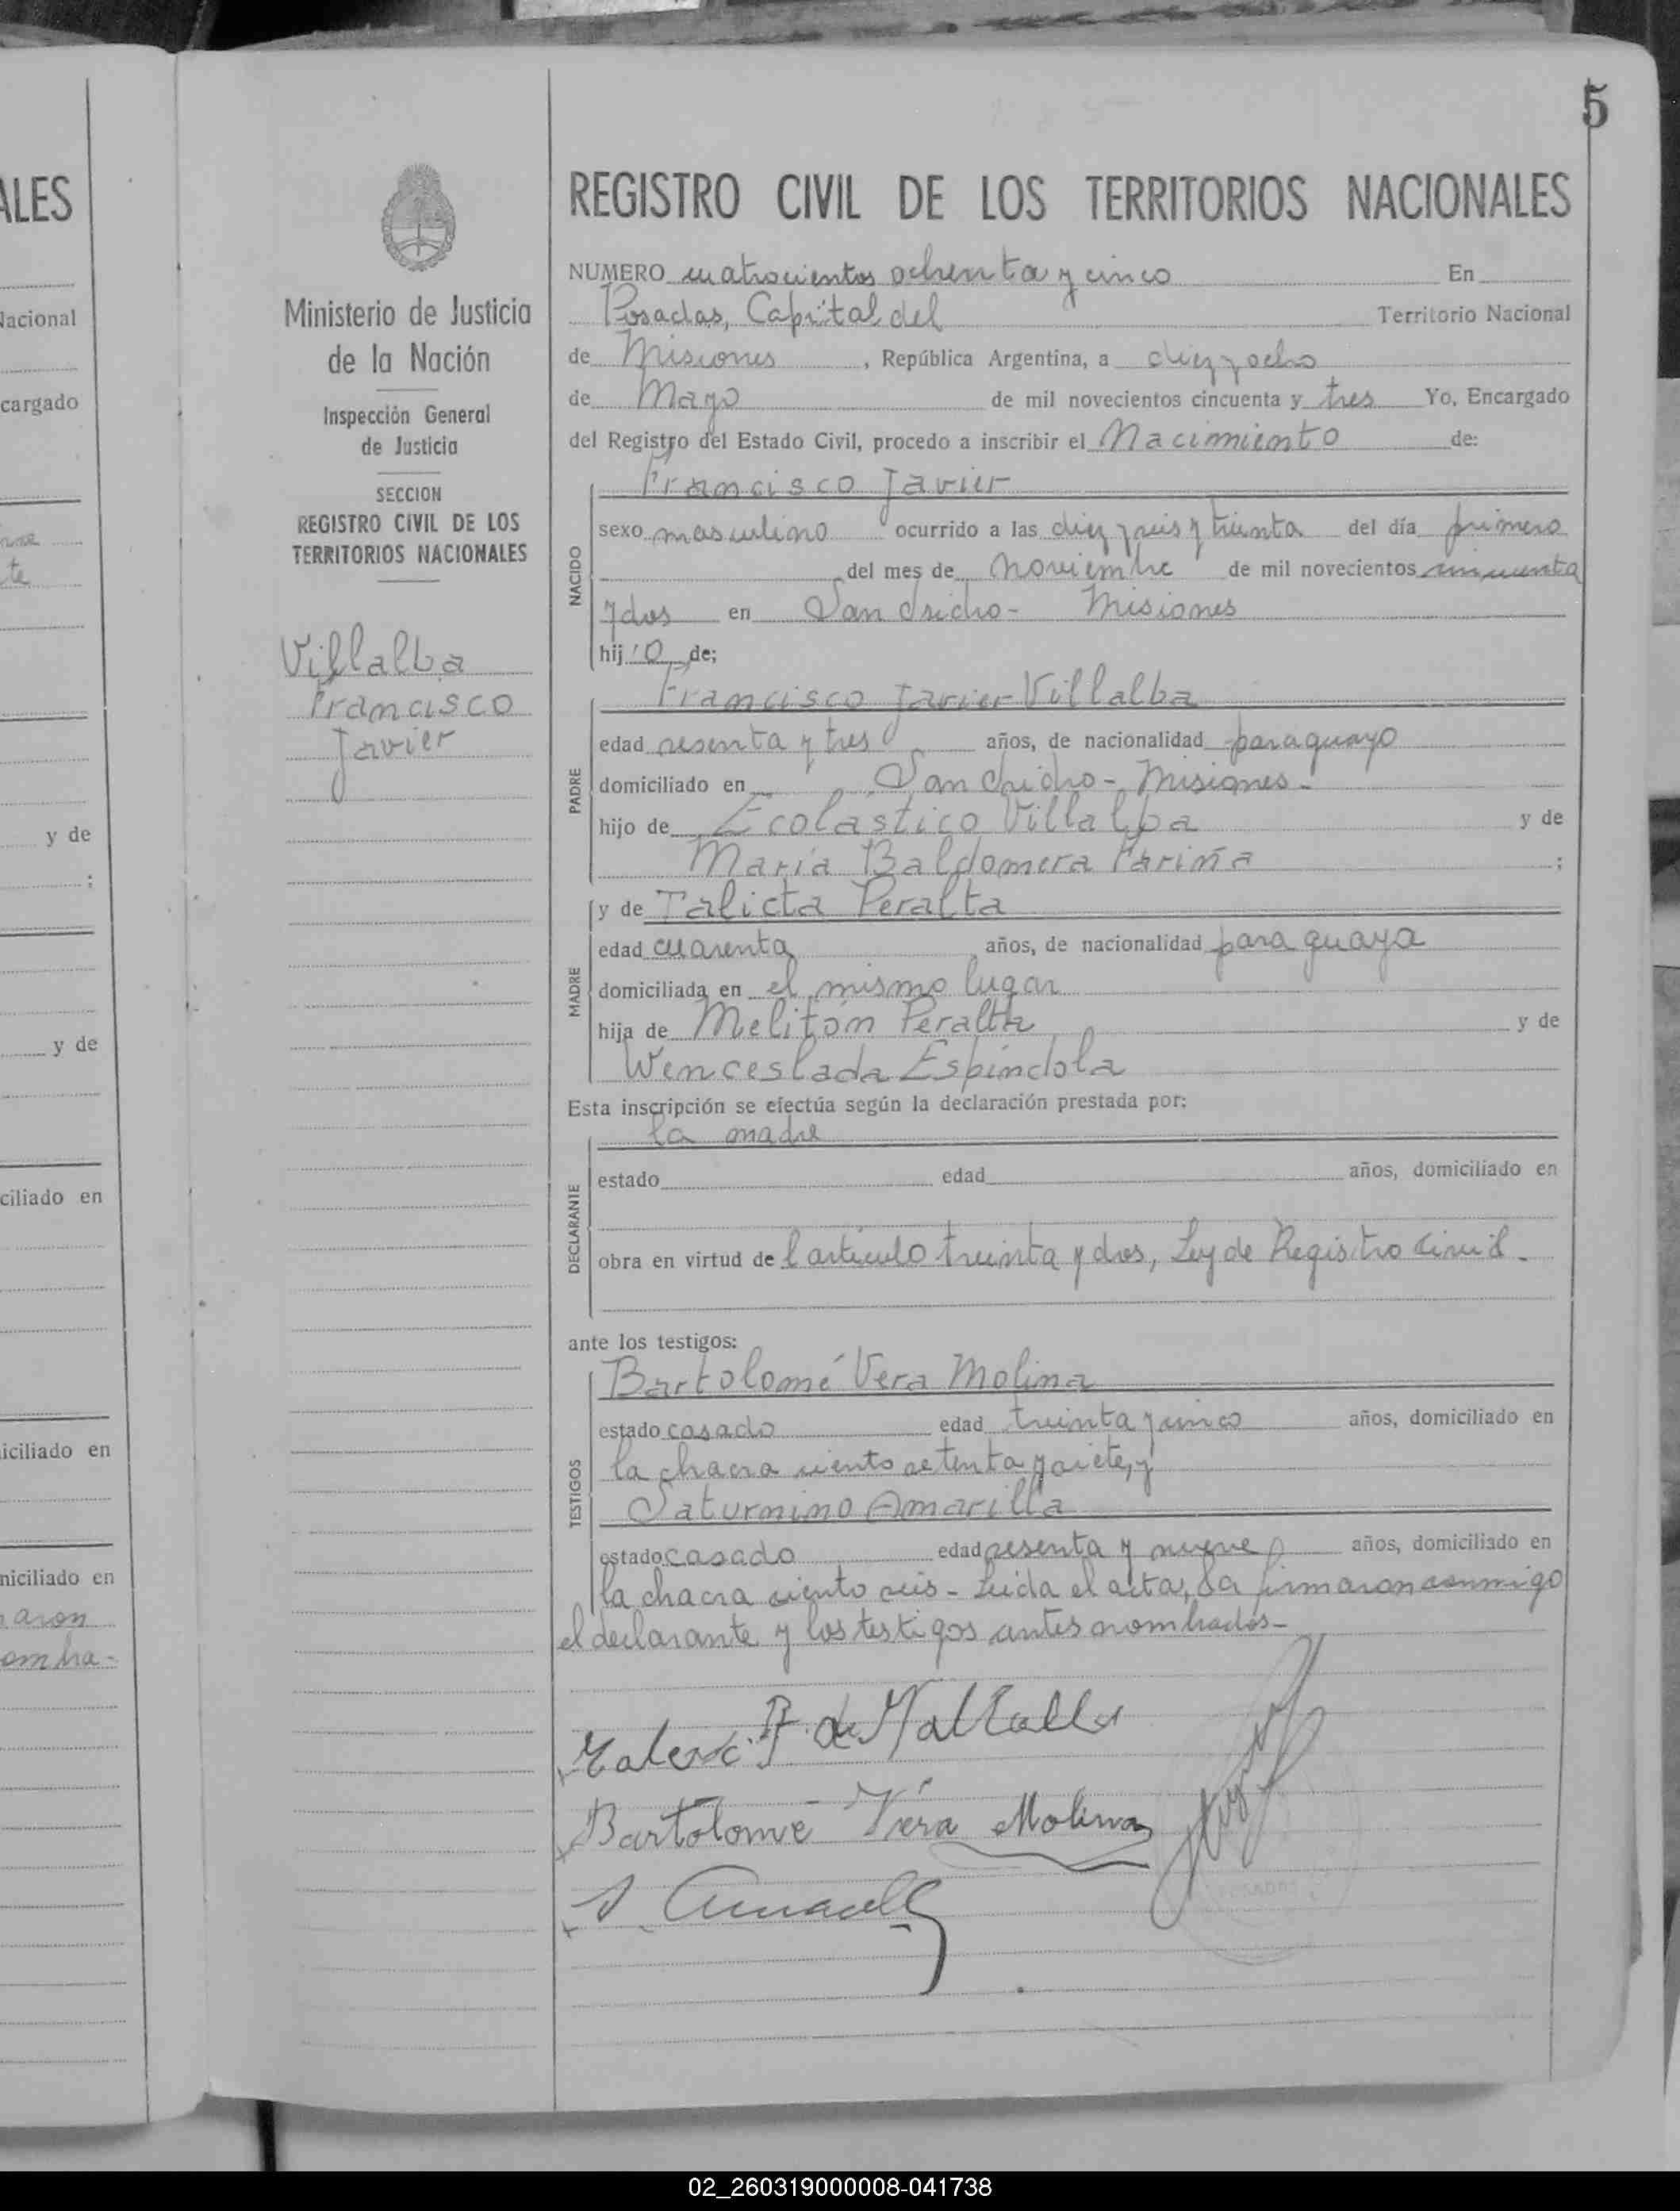 5
ALES
Nacional
cargado
te
y de
;
y de
ciliado en
iciliado en
niciliado en
aron
ombra-
Ministerio de Justicia
de la Nación
Inspección General
de Justicia
SECCION
REGISTRO CIVIL DE LOS
TERRITORIOS NACIONALES
Villalba
Francisco
Javier
REGISTRO CIVIL DE LOS TERRITORIOS NACIONALES
NUMERO cuatrocientos ochenta y cinco En
Posadas, Capital del Territorio Nacional
de Misiones, República Argentina, a diez y ocho
de Mayo de mil novecientos cincuenta y tres Yo, Encargado
del Registro del Estado Civil, procedo a inscribir el Nacimiento de:
Francisco Javier
NACIDO
sexo masculino ocurrido a las diez y seis y treinta del día primero
del mes de noviembre de mil novecientos cincuenta
y dos en San Isidro - Misiones
hij o de;
Francisco Javier Villalba
PADRE
edad sesenta y tres años, de nacionalidad paraguayo
domiciliado en San Isidro - Misiones -
hijo de Ecolástico Villalba y de
María Baldomera Fariña ;
y de Talicta Peralta
MADRE
edad cuarenta años, de nacionalidad paraguaya
domiciliada en el mismo lugar
hija de Melitón Peralta y de
Wenceslada Espíndola
Esta inscripción se efectúa según la declaración prestada por:
la madre
DECLARANTE
estado edad años, domiciliado en
obra en virtud de l artículo treinta y dos, Ley de Registro Civil -
ante los testigos:
Bartolomé Vera Molina
TESTIGOS
estado casado edad treinta y cinco años, domiciliado en
la chacra ciento setenta y siete, y
Saturnino Amarilla
estado casado edad sesenta y nueve años, domiciliado en
la chacra ciento seis - Leída el acta, la firmaron conmigo
el declarante y los testigos antes nombrados -
P. de
Bartolomé Vera Molina
S. Amarilla
POSADAS
02_260319000008-041738